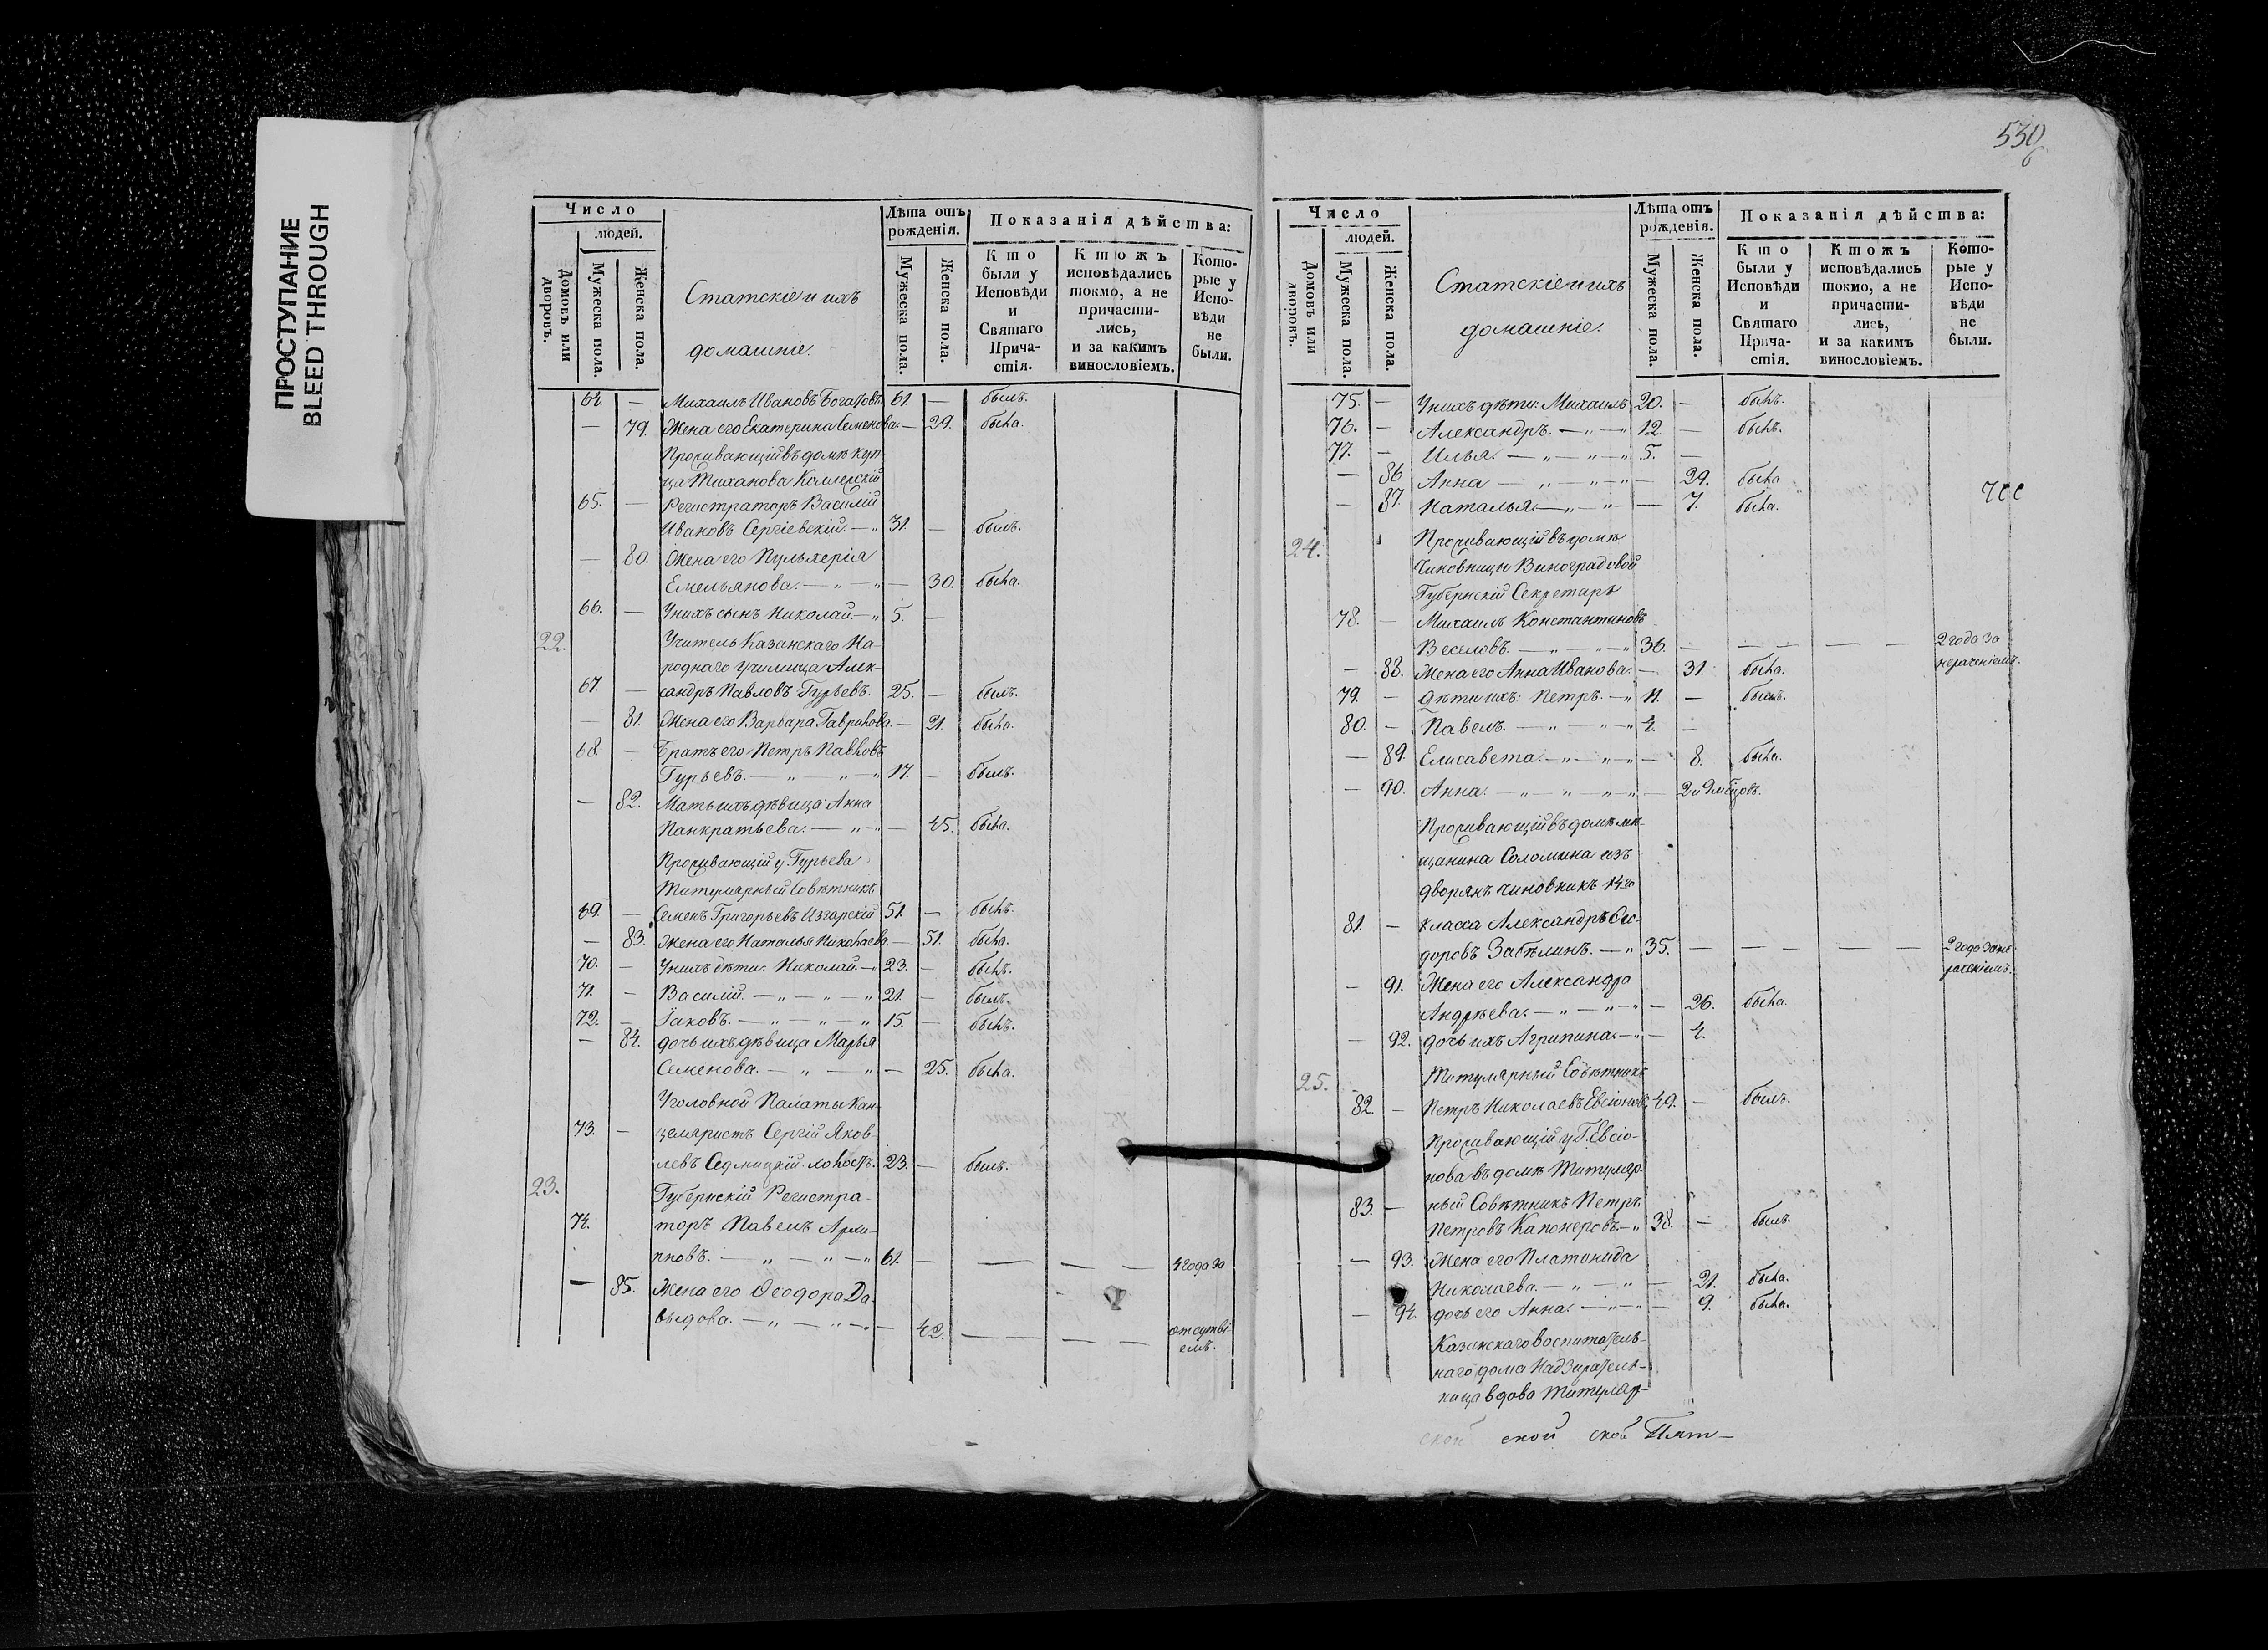 ПРОСТУПАНИЕ
BLEED THROUGH
Число
людей.
Домовъ или дворовъ.
Мужеска пола.
Женска пола.
Статскіе и ихъ
домашніе.
Лѣта отъ рожденія.
Мужеска пола.
Женска пола.
Показанія дѣйства:
Кто были у Исповѣди и Святаго Причастія.
Ктожъ исповѣдались токмо, а не причастились, и за какимъ винословіемъ.
Которые у Исповѣди не были.
64. — Михаилъ Ивановъ Богатовъ 61. — былъ.
— 79. Жена его Екатерина Семенова. — 29. была.
Проживающій въ домѣ куп-
ца Тиханова Коллежскій
65. — Регистраторъ Василій
Ивановъ Сергіевскій. — „ 31. — былъ.
— 80. Жена его Пульхерія
Емельянова. — „ — „ — 30. была.
66. — У нихъ сынъ Николай. — „ 5. —
22. Учитель Казанскаго На-
роднаго училища Алек-
67. — сандръ Павловъ Гурьевъ. 25. — былъ.
— 81. Жена его Варвара Гаврилова. — 21. была.
68 — Братъ его Петръ Павловъ
Гурьевъ. — „ „ — „ 17. — былъ.
— 82. Мать ихъ дѣвица Анна
Панкратьева. — „ — „ — 45. была.
Проживающій у Гурьева
Титулярный Совѣтникъ
69. — Семенъ Григорьевъ Изгарскій 51. — былъ.
— 83. Жена его Наталья Николаева. — 51. была.
70. — У нихъ дѣти: Николай. — „ 23. — былъ.
71. — Василій. — „ — „ — „ 21. — былъ.
72. — Іаковъ. — „ — „ — „ 15. — былъ.
— 84. дочь ихъ дѣвица Марья
Семенова. — „ — „ — 25. была.
Уголовной Палаты Кан-
73. — целяристъ Сергій Яков-
левъ Седмицкій холостъ. 23. — былъ.
23. Губернскій Регистра-
74. торъ Павелъ Архи-
повъ. — „ — „ — „ 61. — — — — 4 года за
— 85. Жена его Ѳеодора Да-
выдова. — „ — „ — „ — 42. — — — — отсутстві-
емъ.
539
Число
людей.
Домовъ или дворовъ.
Мужеска пола.
Женска пола.
Статскіе и ихъ
домашніе.
Лѣта отъ рожденія.
Мужеска пола.
Женска пола.
Показанія дѣйства:
Кто были у Исповѣди и Святаго Причастія.
Ктожъ исповѣдались токмо, а не причастились, и за какимъ винословіемъ.
Которые у Исповѣди не были.
75. — У нихъ дѣти: Михаилъ 20. — былъ.
76. — Александръ. — „ — „ 12. — былъ.
77. — Илья. — „ — „ — „ 5. —
— 86 Анна — „ — „ — „ — 24. была
— 87. Наталья. — „ — „ — 7. была.
24. Проживающій въ домѣ
Чиновницы Виноградовой
Губернскій Секретарь
78. — Михаилъ Константиновъ
Веселовъ. — „ — „ — „ 36. — — — — — 2 года за
нераченіемъ.
— 88. Жена его Анна Иванова. — 31. была.
79. — Дѣти ихъ: Петръ. — „ 11. — былъ.
80. — Павелъ. — „ — „ — „ 4. —
— 89. Елисавета. — „ — „ — „ — 8. была.
— 90. Анна. — „ — „ — „ — „ — 2 и 9 мѣсцовъ.
Проживающій въ домѣ мѣ-
щанина Соломина изъ
дворянъ чиновникъ 14го
81. — класса Александръ Ѳео-
доровъ Забѣлинъ. — „ 35. — — — — — 2 года за не-
раченіемъ.
— 91. Жена его Александра
Андрѣева. — „ — „ — „ — 26. была.
— 92. дочь ихъ Агрипина. — „ — 4.
25. Титулярный Совѣтникъ
82. — Петръ Николаевъ Евсіоновъ 49. — былъ.
Проживающій у Г. Евсіо-
нова въ домѣ Титуляр-
83. — ный Совѣтникъ Петръ
Петровъ Капонеровъ. — „ 38. — былъ.
— 93. Жена его Платонида
Николаева. — „ — „ — 21. была.
— 94. дочь его Анна. — „ — „ — 9. была.
Казанскаго воспитатель-
наго дома Надзиратель-
ница вдова Титуляр-
ской ской ской Пят-